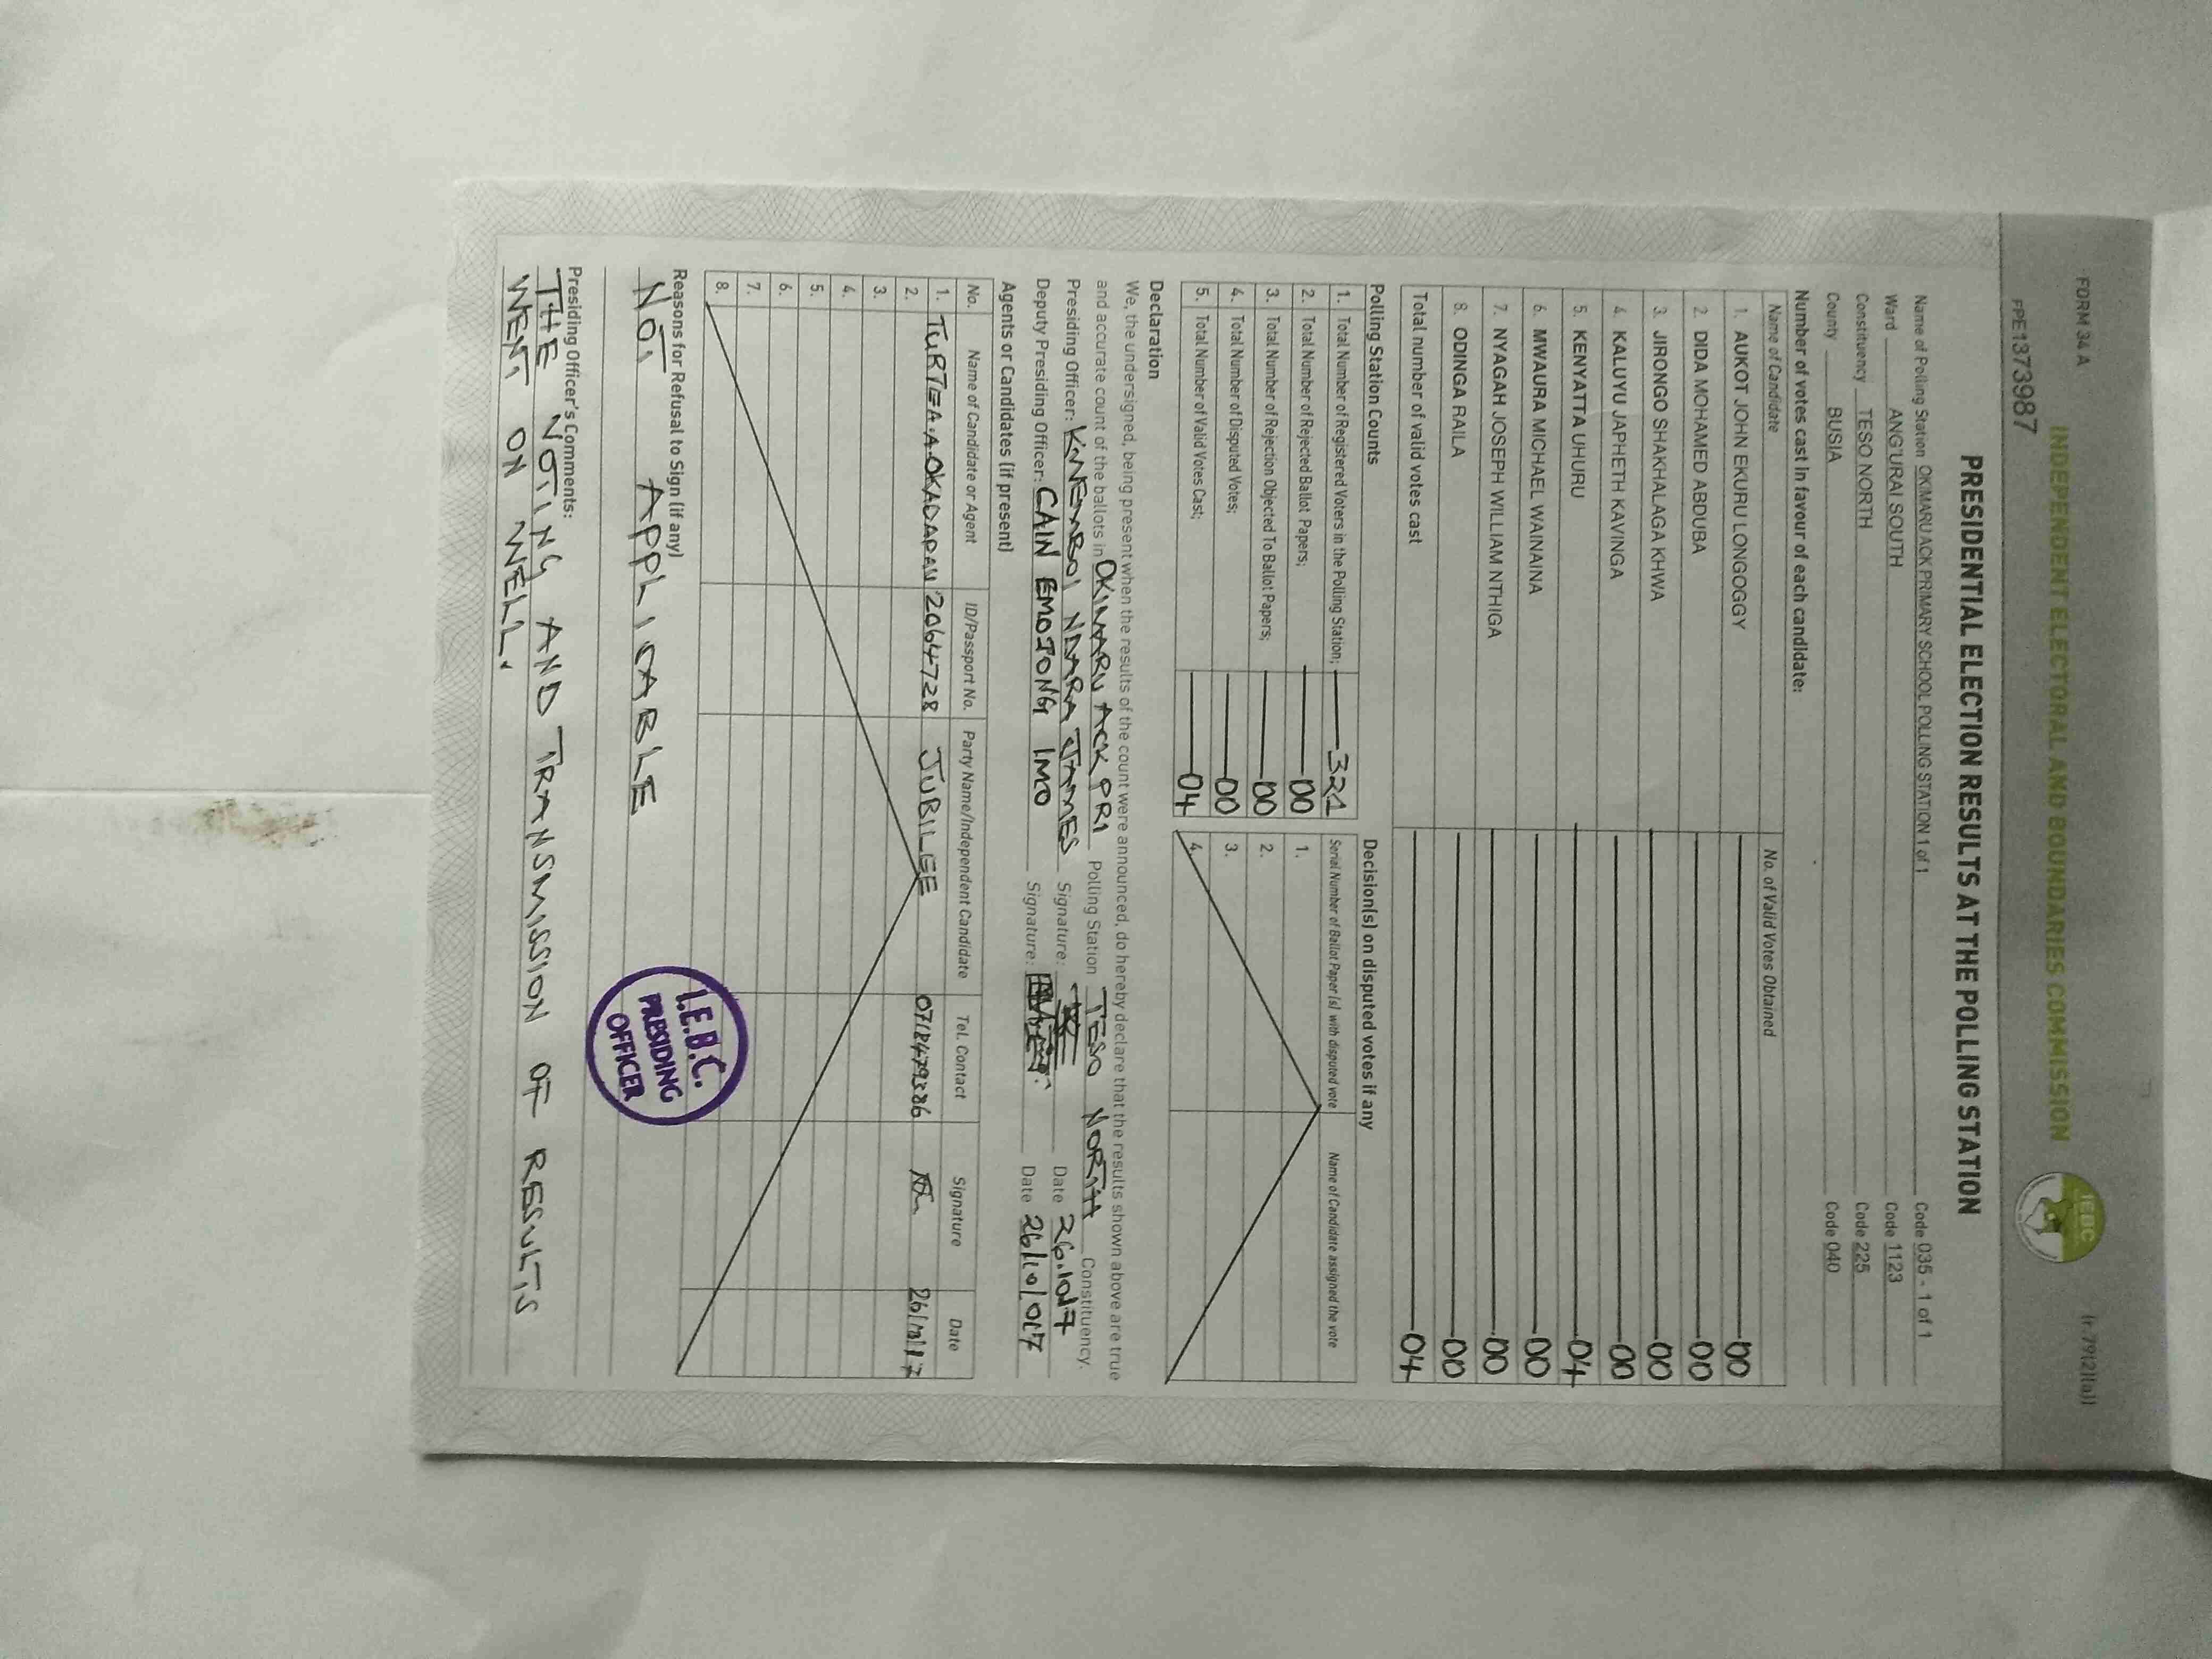 FORM 34 A
(r.79(2)(a))
INDEPENDENT ELECTORAL AND BOUNDARIES COMMISSION
IEBC
PPE1373987
PRESIDENTIAL ELECTION RESULTS AT THE POLLING STATION
Name of Polling Station OKIMARU ACK PRIMARY SCHOOL POLLING STATION 1 of 1 Code 035 - 1 of 1
Ward ANG'URAI SOUTH Code 1123
Constituency TESO NORTH Code 225
County BUSIA Code 040
Number of votes cast in favour of each candidate:
Name of Candidate No. of Valid Votes Obtained
1. AUKOT JOHN EKURU LONGOGGY 00
2. DIDA MOHAMED ABDUBA 00
3. JIRONGO SHAKHALAGA KHWA 00
4. KALUYU JAPHETH KAVINGA 00
5. KENYATTA UHURU 04
6. MWAURA MICHAEL WAINAINA 00
7. NYAGAH JOSEPH WILLIAM NTHIGA 00
8. ODINGA RAILA 00
Total number of valid votes cast 04
Polling Station Counts
1. Total Number of Registered Voters in the Polling Station; 321
2. Total Number of Rejected Ballot Papers; 00
3. Total Number of Rejection Objected To Ballot Papers; 00
4. Total Number of Disputed Votes; 00
5. Total Number of Valid Votes Cast; 04
Decision(s) on disputed votes if any
Serial Number of Ballot Paper (s) with disputed vote Name of Candidate assigned the vote
1.
2.
3.
4.
Declaration
We, the undersigned, being present when the results of the count were announced, do hereby declare that the results shown above are true
and accurate count of the ballots in OKIMARU ACK PRI Polling Station TESO NORTH Constituency.
Presiding Officer: NDARA JAMES Signature: Date 26.10.17
Deputy Presiding Officer: CAIN EMOJONG IMO Signature: Date 26/10/017
Agents or Candidates (if present)
No. Name of Candidate or Agent ID/Passport No. Party Name/Independent Candidate Tel. Contact Signature Date
1. 20647728 JUBILEE 26/10/17
2.
3.
4.
5.
6.
7.
8.
Reasons for Refusal to Sign (if any)
NOT APPLICABLE
I.E.B.C.
PRESIDING
OFFICER
Presiding Officer's Comments:
THE VOTING AND TRANSMISSION OF RESULTS
WENT ON WELL.